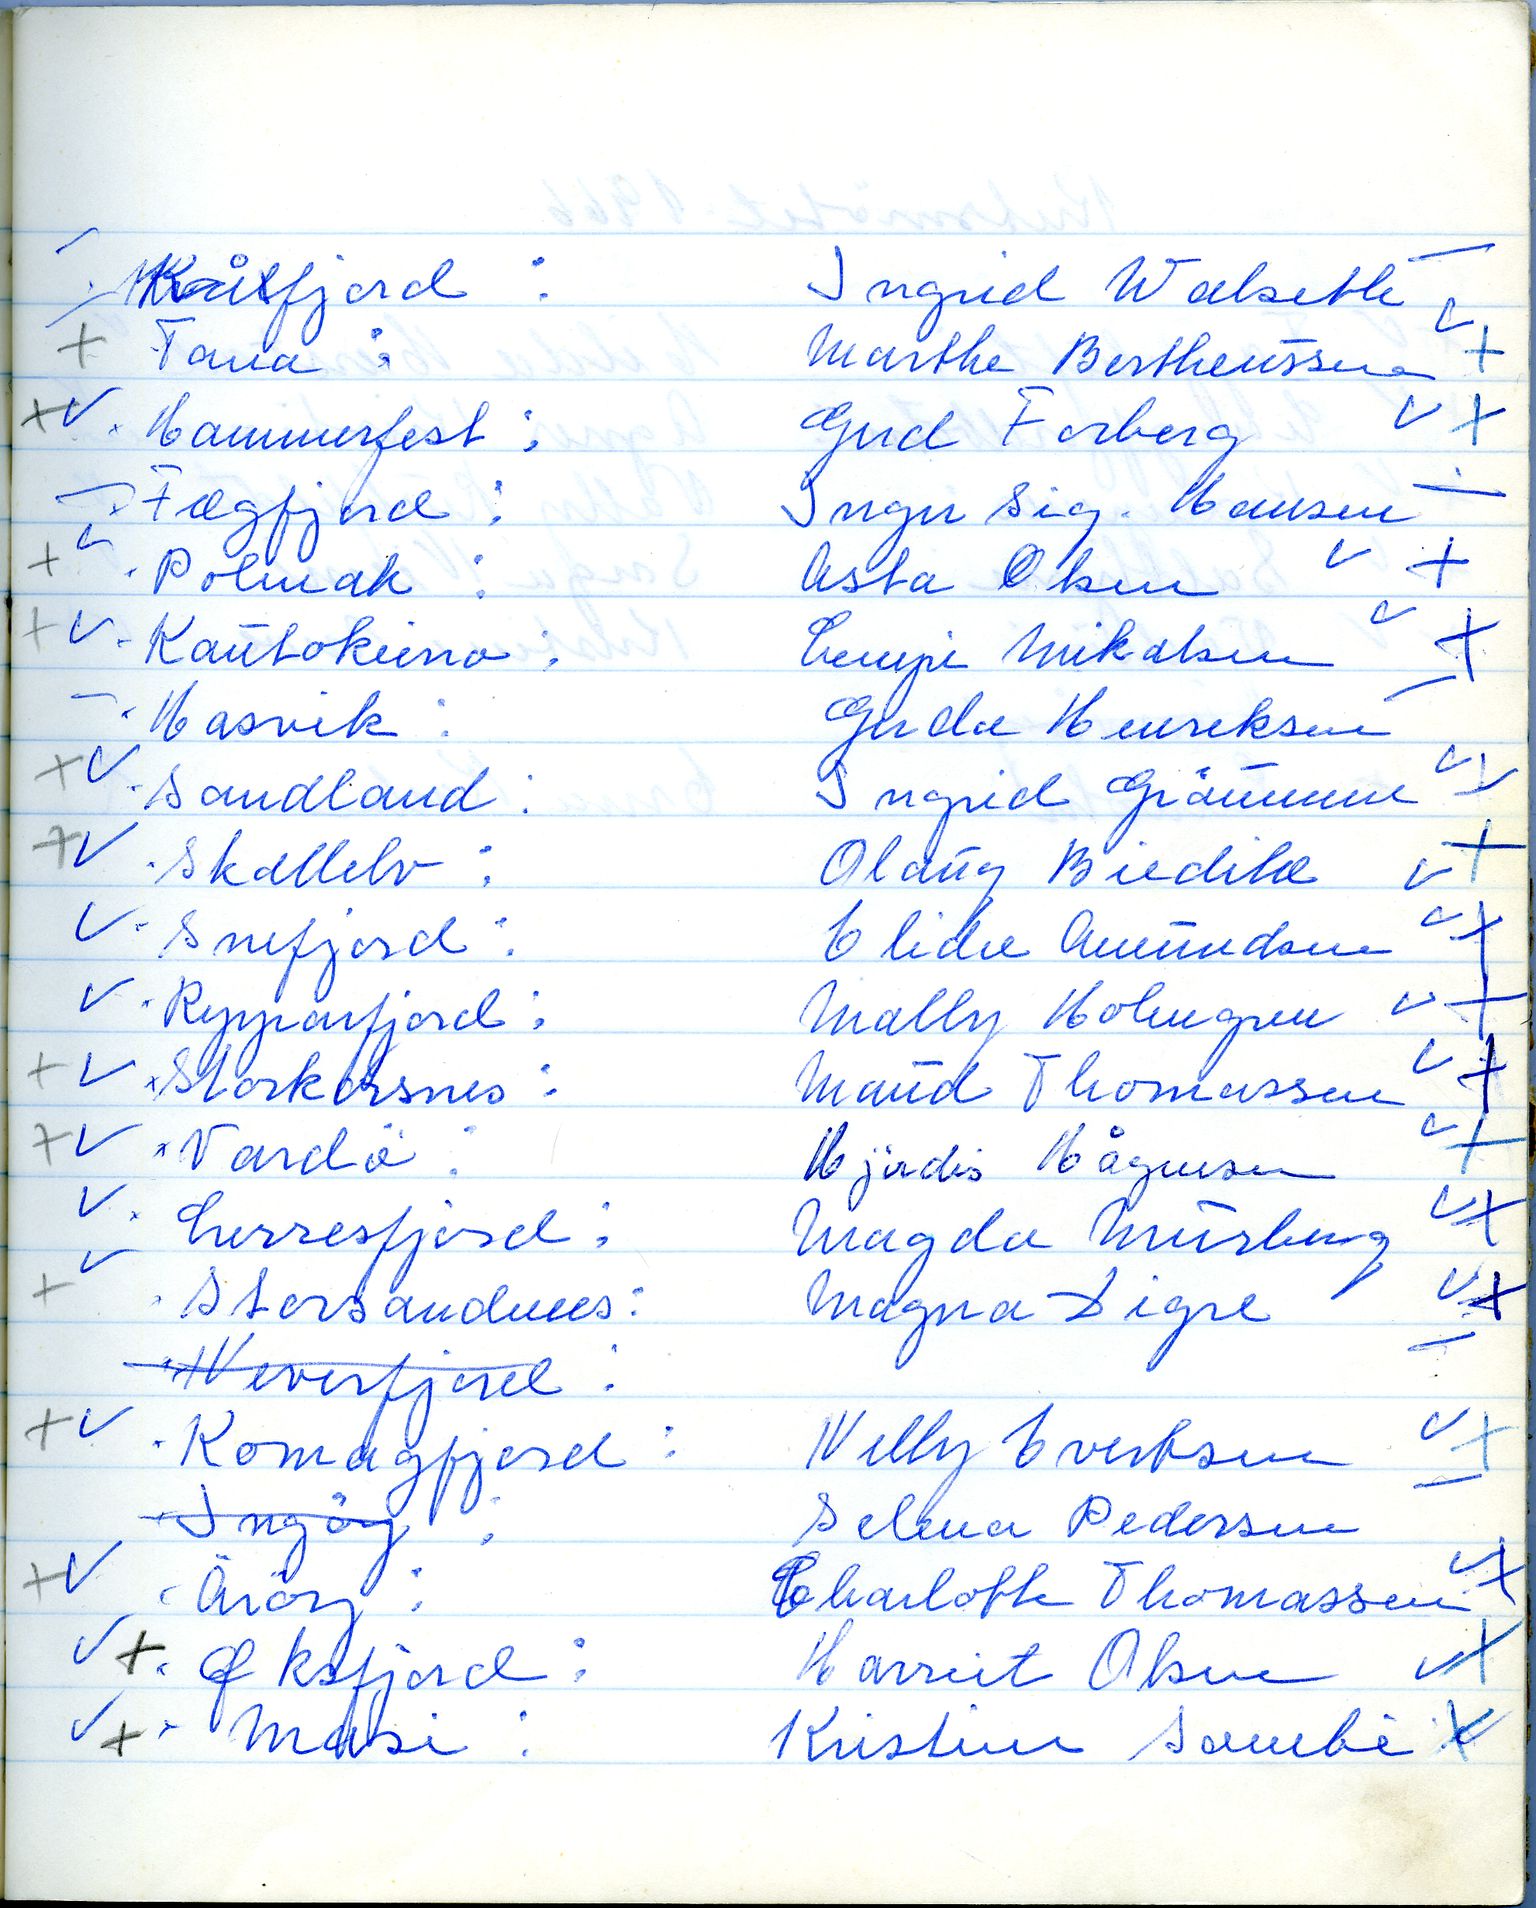 Kåfjord : Ingrid Walseth
Tana : Marthe Bertheussen
Hammerfest : Gerd Forberg
Fægfjord : Inger Sig. Hansen
Polmak : Asta Olsen
Kautokeino : Lempi Mikalsen
Hasvik : Gerda Henriksen
Sandland : Ingrid
Skallelv : Olaug
Snefjord : Elida Amundsen
Repparfjord : Mally Holmgren
Storkorsnes : Maud Thomassen
Vardö : Hjördis Hågensen
Lerresfjord : Magda Mürberg
Storsandnes : Magna Digre
Neverfjord :
Komagfjord : Nelly Evertsen
Ingöy : Selma Pedersen
Åröy : Charlotte Thomassen
Øksfjord : Harriet Olsen
Masi : Kristine Somby